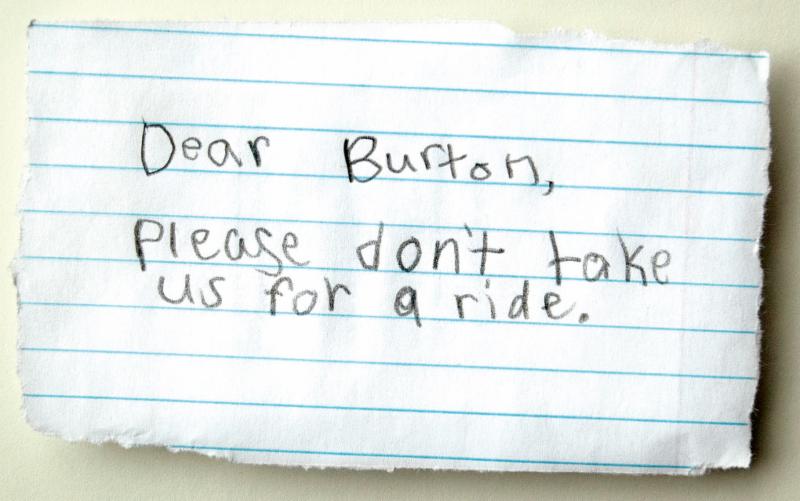 Dear Burton,
please don't take
us for a ride.